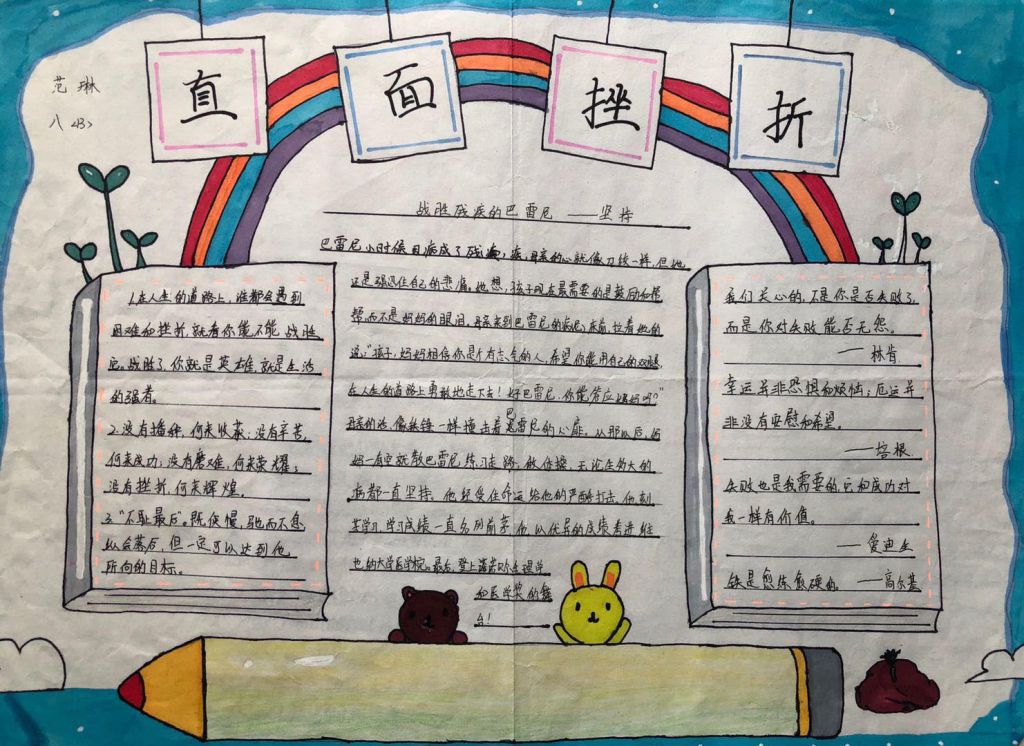 范琳
八<3>
直面挫折
1.在人生的道路上,谁都会遇到
困难和挫折,就看你能不能战胜
它。战胜了,你就是英雄,就是生活
的强者。
2.没有播种,何来收获;没有辛苦,
何来成功;没有磨难,何来荣耀;
没有挫折,何来辉煌。
3."不耻最后"。既使慢,驰而不息
纵会落后,但一定可以达到他
所向的目标。
战胜残疾的巴雷尼——坚持
巴雷尼小时候因病成了残疾,母亲的心就像刀绞一样,但她
还是强忍住自己的悲痛。她想,孩子现在最需要的是鼓励和帮
帮,而不是妈妈的眼泪。母亲来到巴雷尼的病床前,拉着他的
说:"孩子,妈妈相信你是个有志气的人,希望你能用自己的双腿,
在人生的道路上勇敢地走下去!好巴雷尼,你能答应妈妈吗?"
母亲的话,像铁锤一样撞击着巴雷尼的心扉。从那以后,妈
妈一有空就教巴雷尼练习走路,做体操,无论生多大的
病都一直坚持。他经受住命运给他的严酷打击,他刻
苦学习,学习成绩一直名列前茅,他以优异的成绩考进维
也纳大学医学院。最后,登上诺贝尔生理学
和医学奖的舞
台!
我们关心的,不是你是否失败了,
而是你对失败能否无怨。
——林肯
幸运并非恐惧和烦恼;厄运并
非没有安慰和希望。
——培根
失败也是我需要的,它和成功对
我一样有价值。
——爱迪生
铁是愈炼愈硬的。——高尔基